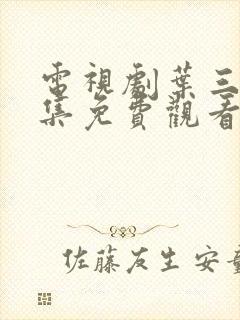 電視劇葉三
集免費觀看
佐藤友生安童